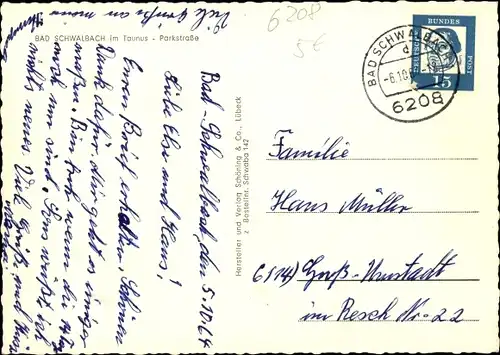 6208
5€
BAD SCHWALBACH im Taunus - Parkstraße
Viele Grüße an
Bad-Schwalbach, den 5.10.64
Liebe Else und Hans!
Euren Brief erhalten. Schönen
Dank dafür. Mir geht es
Bin froh wenn die
um sind. Sonst weiß ich
nichts neues. Viele Grüße und
Hersteller und Verlag Schöning & Co., Lübeck
Bestellnr. Schwaba 142
BAD SCHWALBACH
-6.10
6208
DEUTSCHE BUNDESPOST
15
Familie
Hans Müller
Groß-Umstadt
im Resch Nr. 22